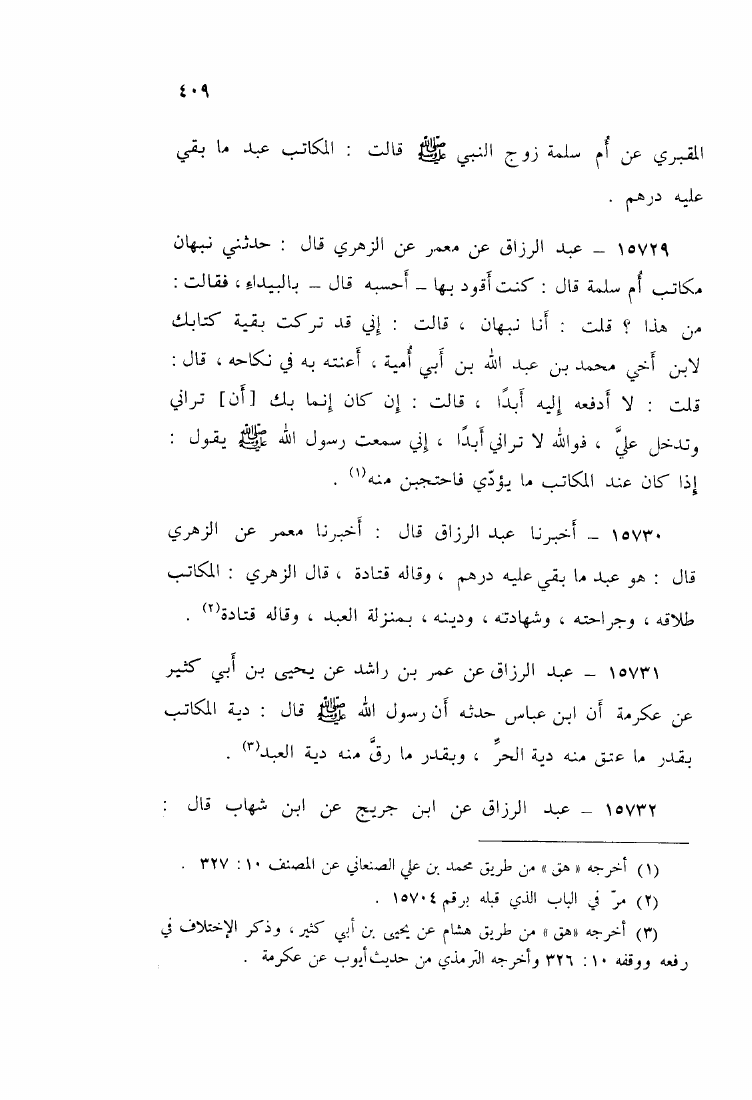 ٤٠٩
المقبري عن أُم سلمة زوج النبي ﷺ قالت : المكاتب عبد ما بقي
عليه درهم .
١٥٧٢٩ – عبد الرزاق عن معمر عن الزهري قال : حدثني نبهان
مكاتب أُم سلمة قال : كنت أَقود بها – أَحسبه قال – بالبيداءِ ، فقالت :
من هذا ؟ قلت : أَنا نبهان ، قالت : إِني قد تركت بقية كتابك
لابن أَخي محمد بن عبد الله بن أَبي أُمية ، أَعنته به في نكاحه ، قال :
قلت : لا أَدفعه إِليه أَبدًا ، قالت : إِن كان إِنما بك [أن] تراني
وتدخل عليَّ ، فوالله لا تراني أَبدًا ، إِني سمعت رسول الله ﷺ يقول :
إِذا كان عند المكاتب ما يؤدّي فاحتجبن منه(١) .
١٥٧٣٠ – أَخبرنا عبد الرزاق قال : أَخبرنا معمر عن الزهري
قال : هو عبد ما بقي عليه درهم ، وقاله قتادة ، قال الزهري : المكاتب
طلاقه ، وجراحته ، وشهادته ، ودينه ، بمنزلة العبد ، وقاله قتادة(٢) .
١٥٧٣١ – عبد الرزاق عن عمر بن راشد عن يحيى بن أَبي كثير
عن عكرمة أَن ابن عباس حدثه أَن رسول الله ﷺ قال : دية المكاتب
بقدر ما عتق منه دية الحرِّ ، وبقدر ما رقَّ منه دية العبد(٣) .
١٥٧٣٢ – عبد الرزاق عن ابن جريج عن ابن شهاب قال :
(١) أخرجه « هق » من طريق محمد بن علي الصنعاني عن المصنف ١٠ : ٣٢٧ .
(٢) مرّ في الباب الذي قبله برقم ١٥٧٠٤ .
(٣) أخرجه «هق » من طريق هشام عن يحيى بن أبي كثير ، وذكر الإختلاف في
رفعه ووقفه ١٠ : ٣٢٦ وأخرجه الترمذي من حديث أيوب عن عكرمة .